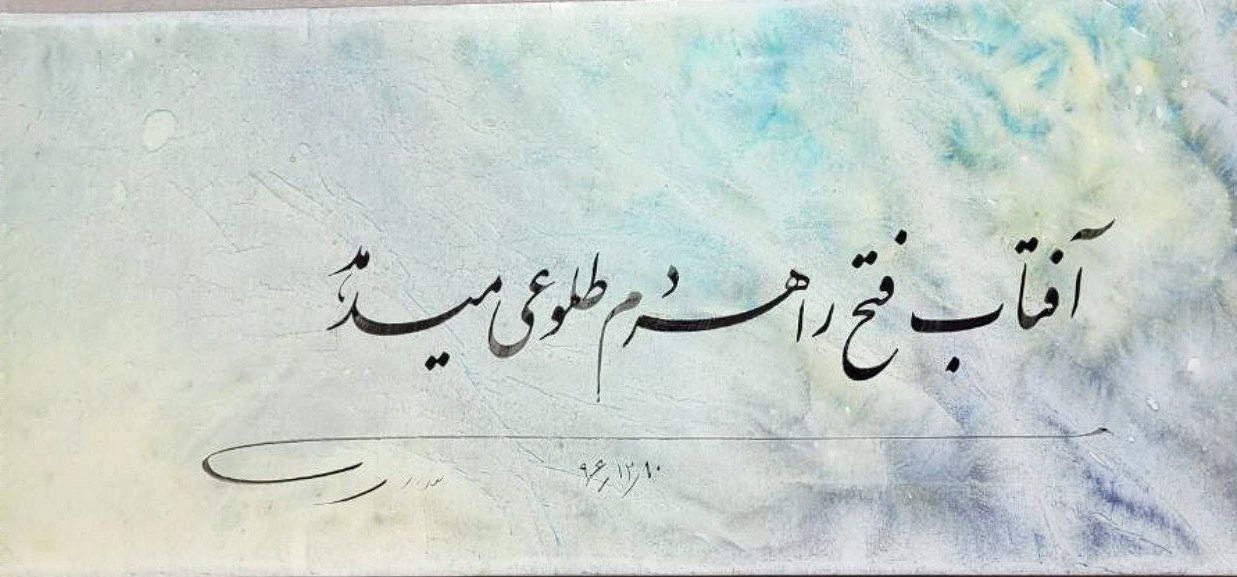 آفتاب فتح را هر دم طلوعی میدهد
۹۶٫۱۲٫۱۰